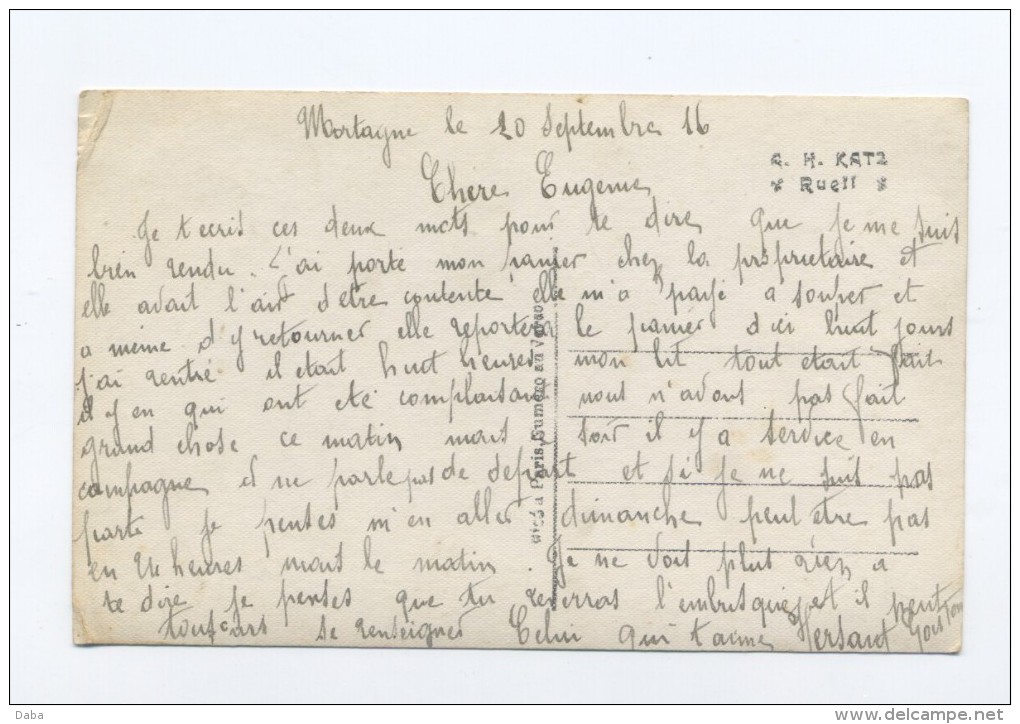 Mortagne le 20 Septembre 16
A. H. KATZ
Rueil
Chere Eugenie
Je t ecris ces deux mots pour te dire que je me suis
bien rendu. J'ai porte mon panier chez la proprietaire et
elle avait l'air d'etre contente elle m'a payé a souper et
a meme d'y retourner elle reportera le panier d'ici huit jours
j'ai rentré il etait huit heures mon lit tout etait fait
il y en qui ont eté complaisant nous n'avons pas fait
grand chose ce matin mais ce soir il y a service en
campagne il ne parle pas de depart et si je ne suis pas
parti je penses m'en aller dimanche peut etre pas
en 24 heures mais le matin. Je ne vois plus rien a
te dire je penses que tu reverras l'embusque, et il peut
toujours se renseigner Celui qui t'aime Hersant Gaston
à Paris. Numéro au Verso
Daba
www.delcampe.net